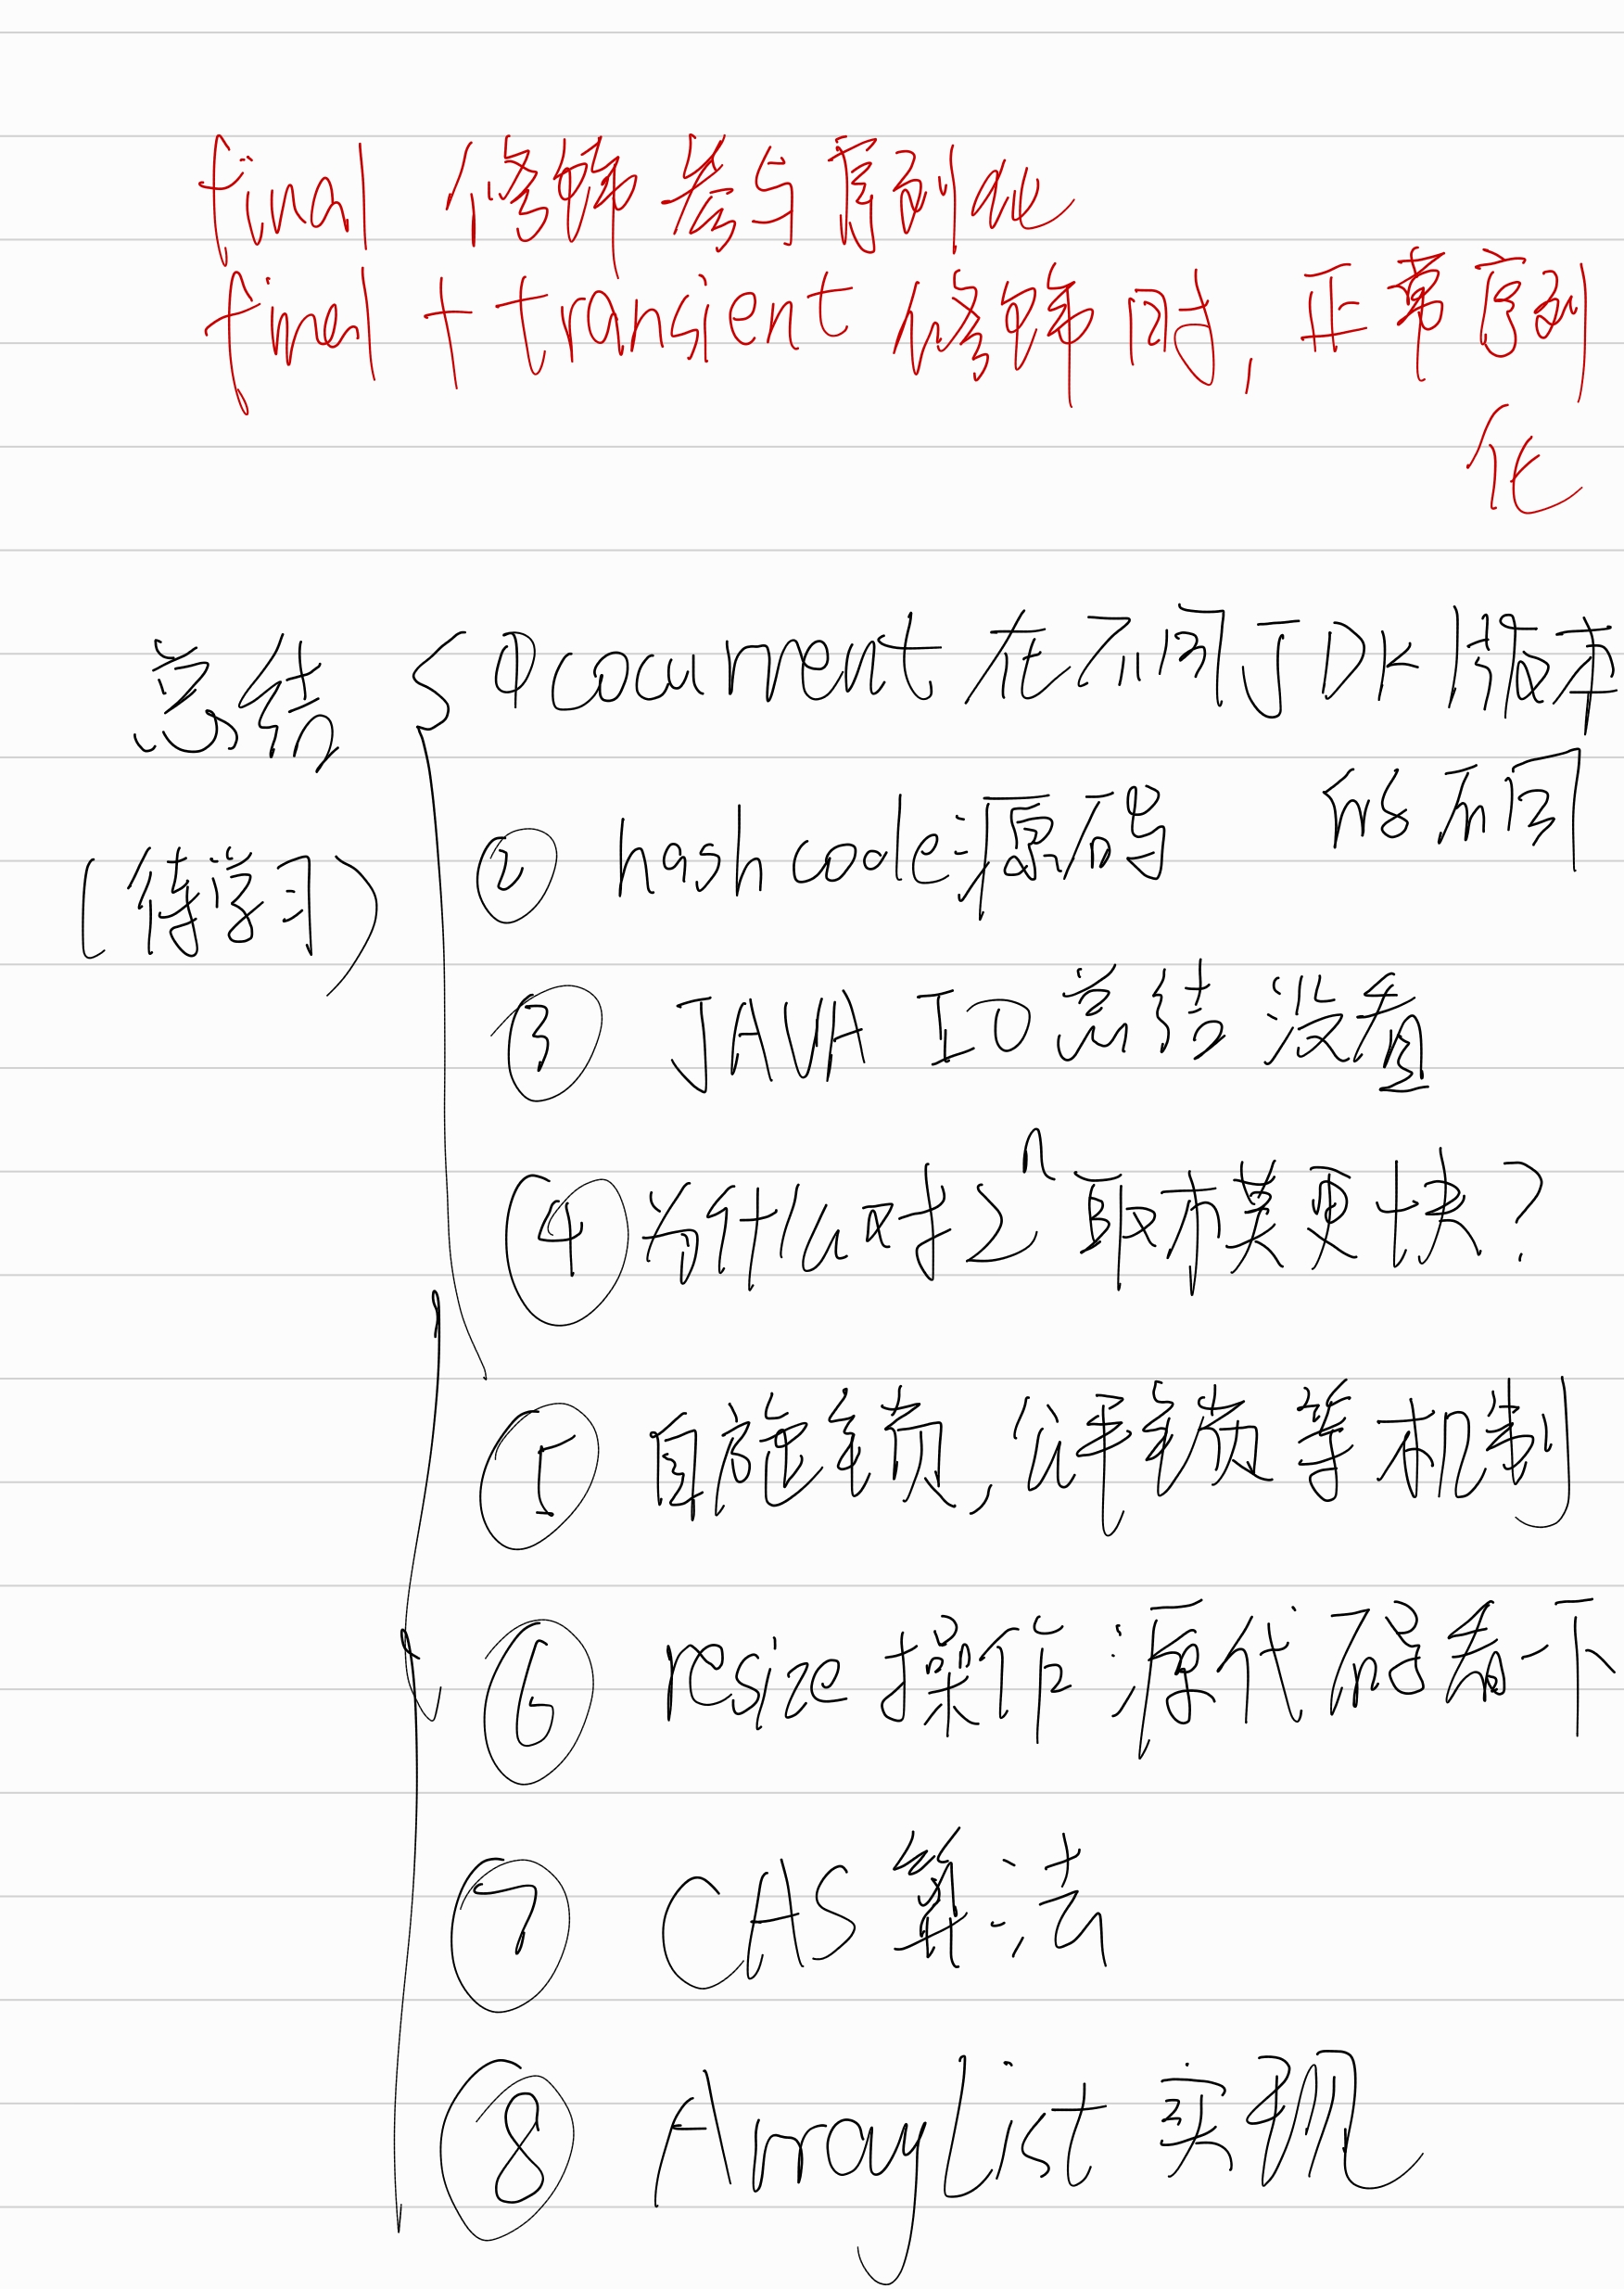 final 修饰 参与序列化
final + transient 修饰时, 正常序列
化
总结
(待学习)
① Cocurrent 在不同 JDK 版本
的不同
② hashcode 源码
③ JAVA IO 总结 没看
④ 为什么对 2ⁿ 取模更快?
⑤ 自旋锁, 公平锁等机制
⑥ resize 操作 源代码看一下
⑦ CAS 算法
⑧ ArrayList 实现